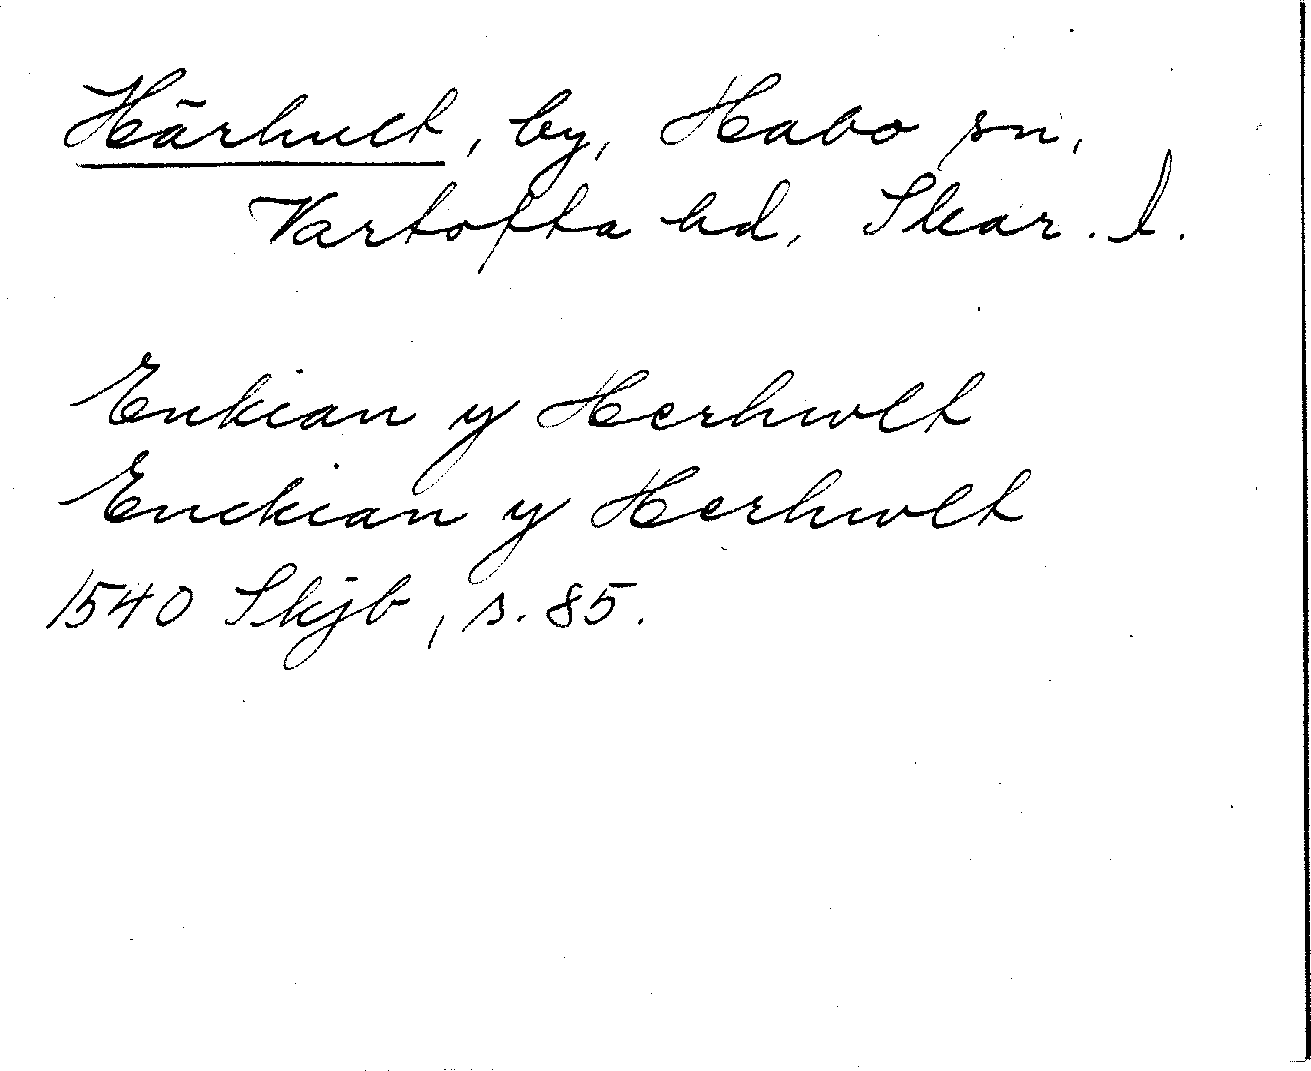 Härhult, by, Habo sn,
Vartofta hd, Skar. l.
Enkian y Herhwlt
Enckian y Herhwlt
1540 Skjb, s. 85.